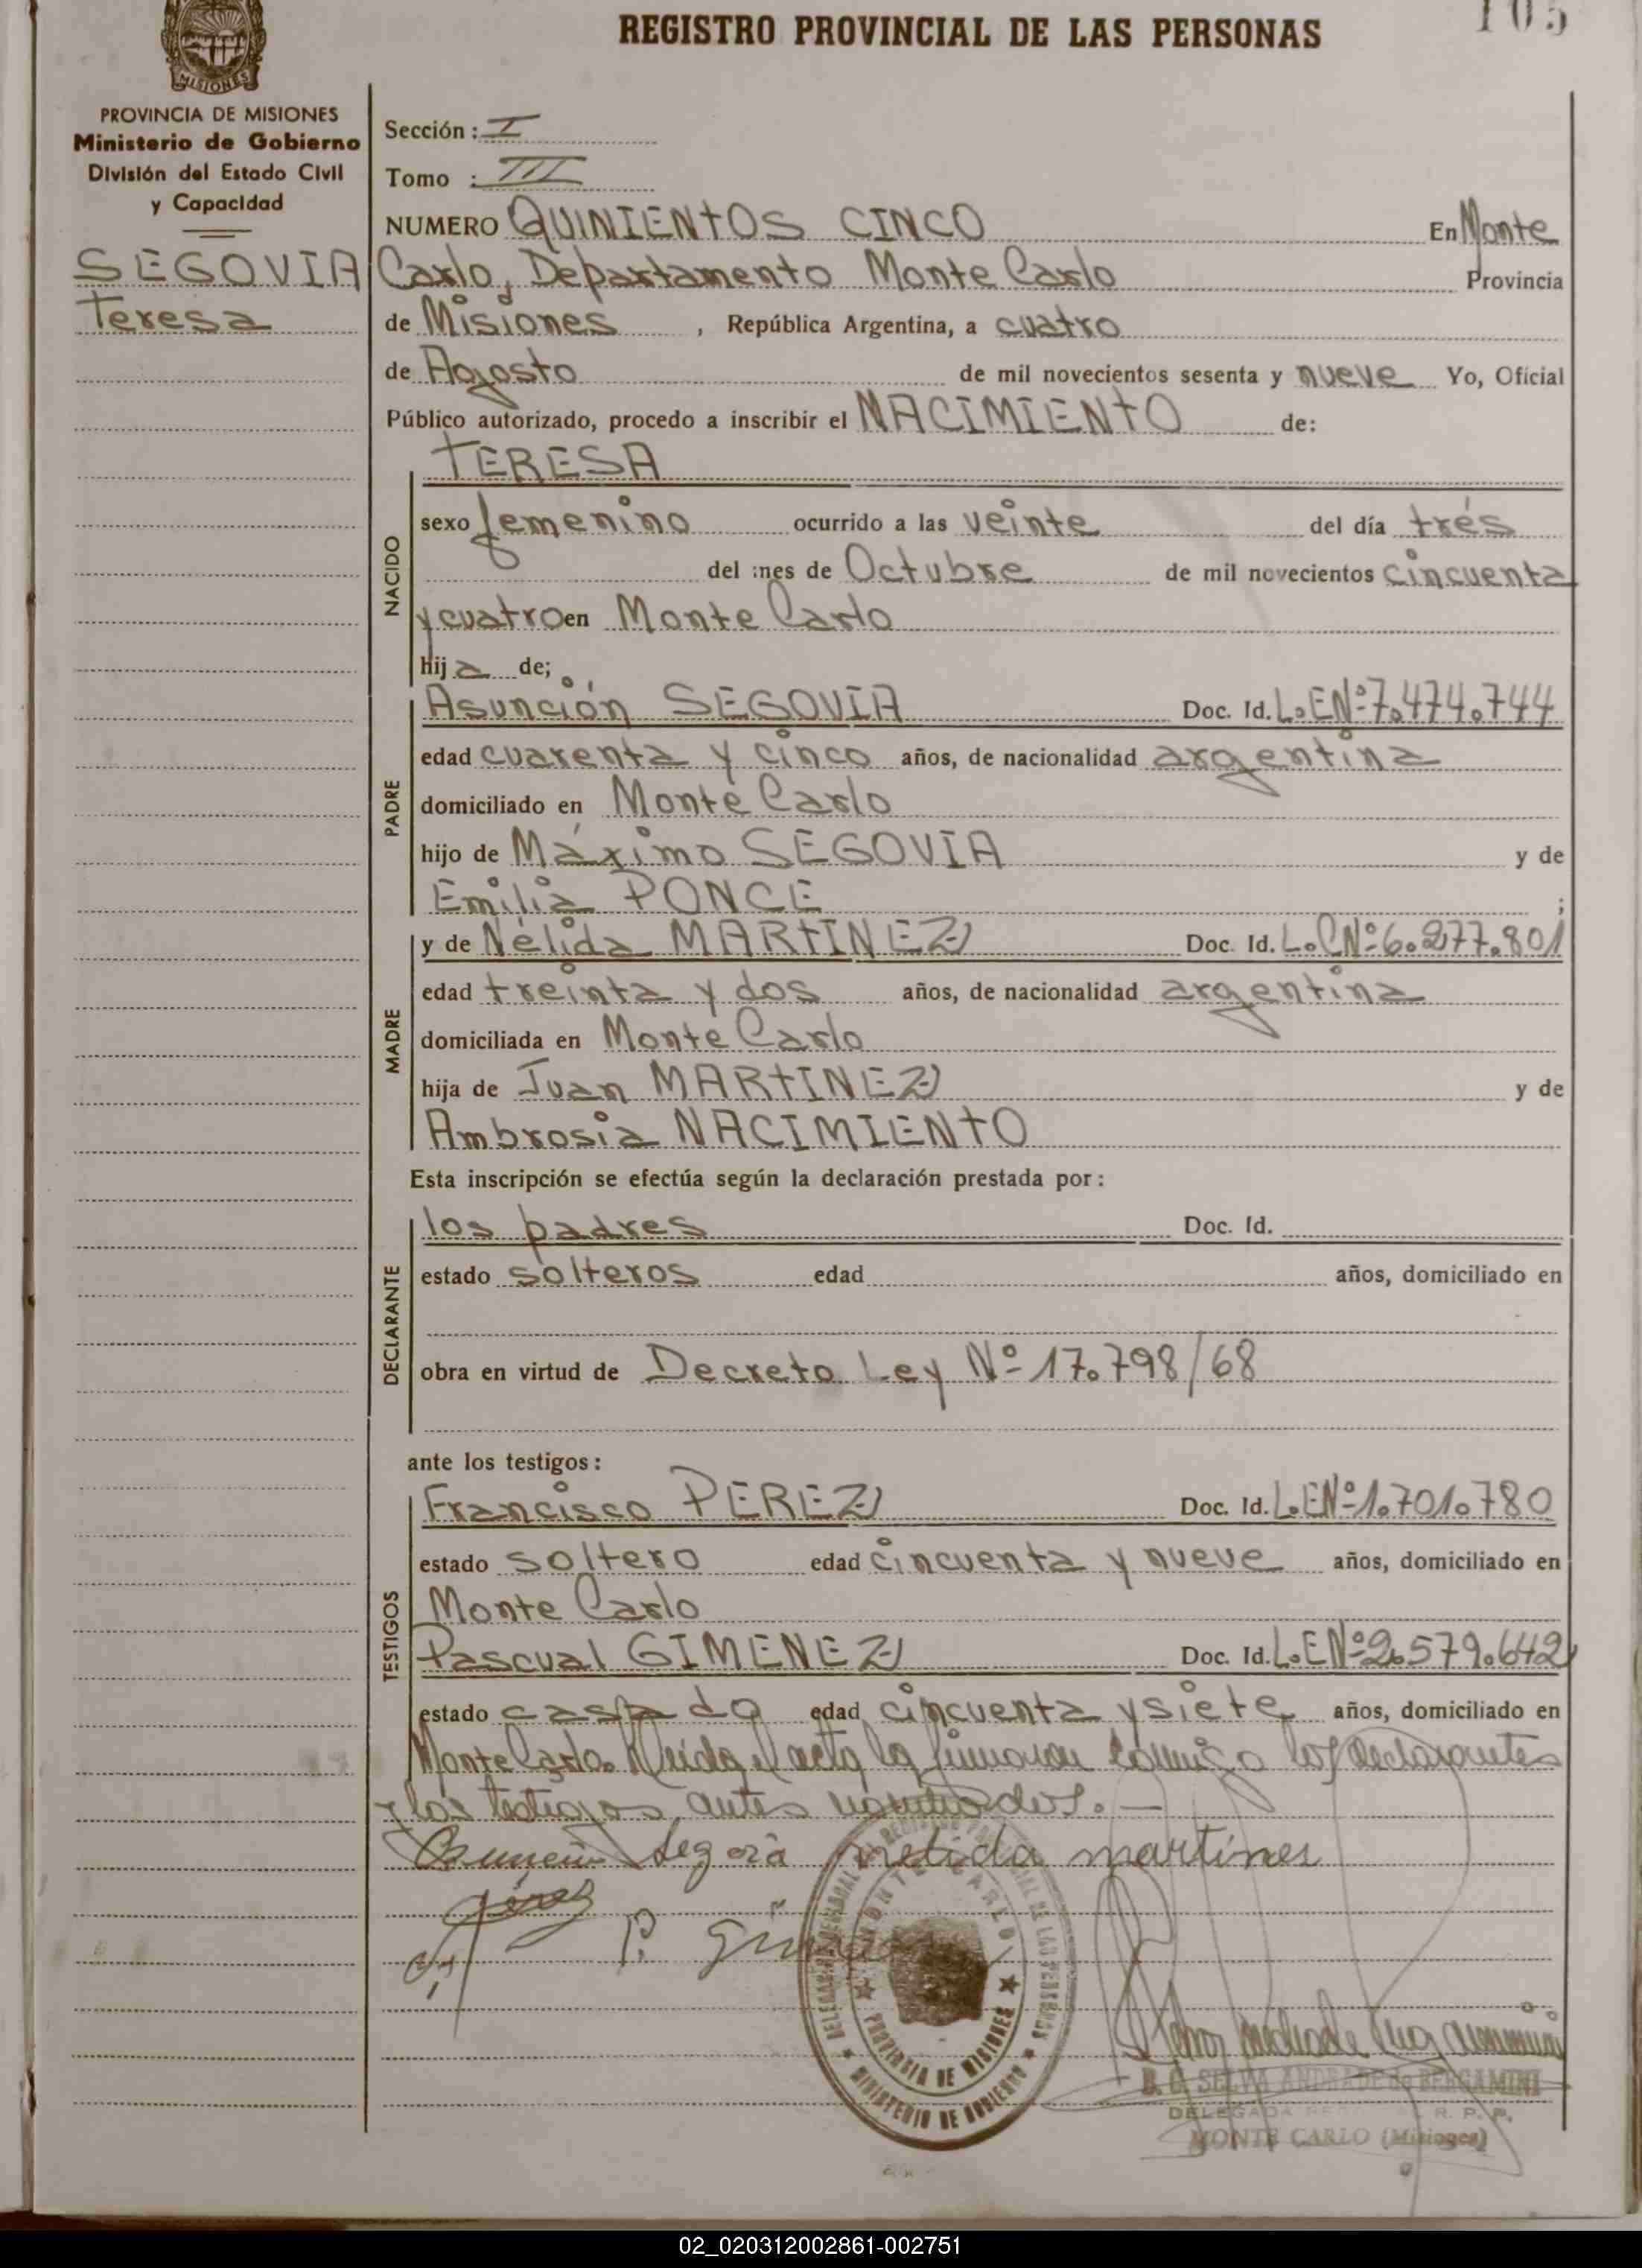 105
REGISTRO PROVINCIAL DE LAS PERSONAS
MISIONES
PROVINCIA DE MISIONES
Ministerio de Gobierno
División del Estado Civil
y Capacidad
SEGOVIA
Teresa
Sección: I
Tomo : III
NUMERO QUINIENTOS CINCO En Monte
Carlo, Departamento Monte Carlo Provincia
de Misiones, República Argentina, a cuatro
de Agosto de mil novecientos sesenta y nueve Yo, Oficial
Público autorizado, procedo a inscribir el NACIMIENTO de:
TERESA
NACIDO
sexo femenino ocurrido a las veinte del día trés
del mes de Octubre de mil novecientos cincuenta
y cuatro en Monte Carlo
hija de;
PADRE
Asunción SEGOVIA Doc. Id. L.E Nº 7.474.744
edad cuarenta y cinco años, de nacionalidad argentina
domiciliado en Monte Carlo
hijo de Máximo SEGOVIA y de
Emilia PONCE ;
MADRE
y de Nélida MARTINEZ Doc. Id. L.C Nº 6.277.801
edad treinta y dos años, de nacionalidad argentina
domiciliada en Monte Carlo
hija de Juan MARTINEZ y de
Ambrosia NACIMIENTO
Esta inscripción se efectúa según la declaración prestada por:
DECLARANTE
los padres Doc. Id.
estado solteros edad años, domiciliado en
obra en virtud de Decreto Ley Nº 17.798/68
ante los testigos:
TESTIGOS
Francisco PEREZ Doc. Id. L.E Nº 1.701.780
estado soltero edad cincuenta y nueve años, domiciliado en
Monte Carlo
Pascual GIMENEZ Doc. Id. L.E Nº 2.579.642
estado casado edad cincuenta y siete años, domiciliado en
Monte Carlo. Leída el acta la firmaron conmigo los declarantes
y los testigos antes nombrados.—
Asunción Segovia nelida martines
Pérez
P. Gimenez
MONTE CARLO
PROVINCIA DE MISIONES
MINISTERIO DE GOBIERNO
SELVA ANDRADE de BERGAMINI
DELEGADA R. P. P.
MONTE CARLO (Misiones)
02_020312002861-002751